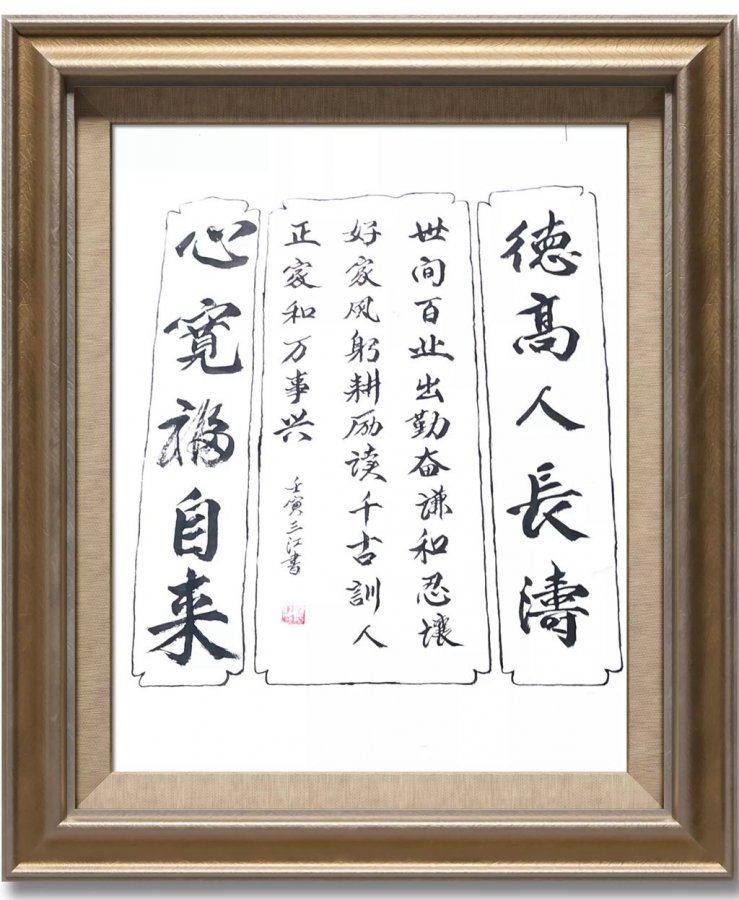 德高人長濤
世间百业出勤奋谦和忍壤
好家风躬耕励读千古訓人
正家和万事兴
壬寅三江書
心寬福自来